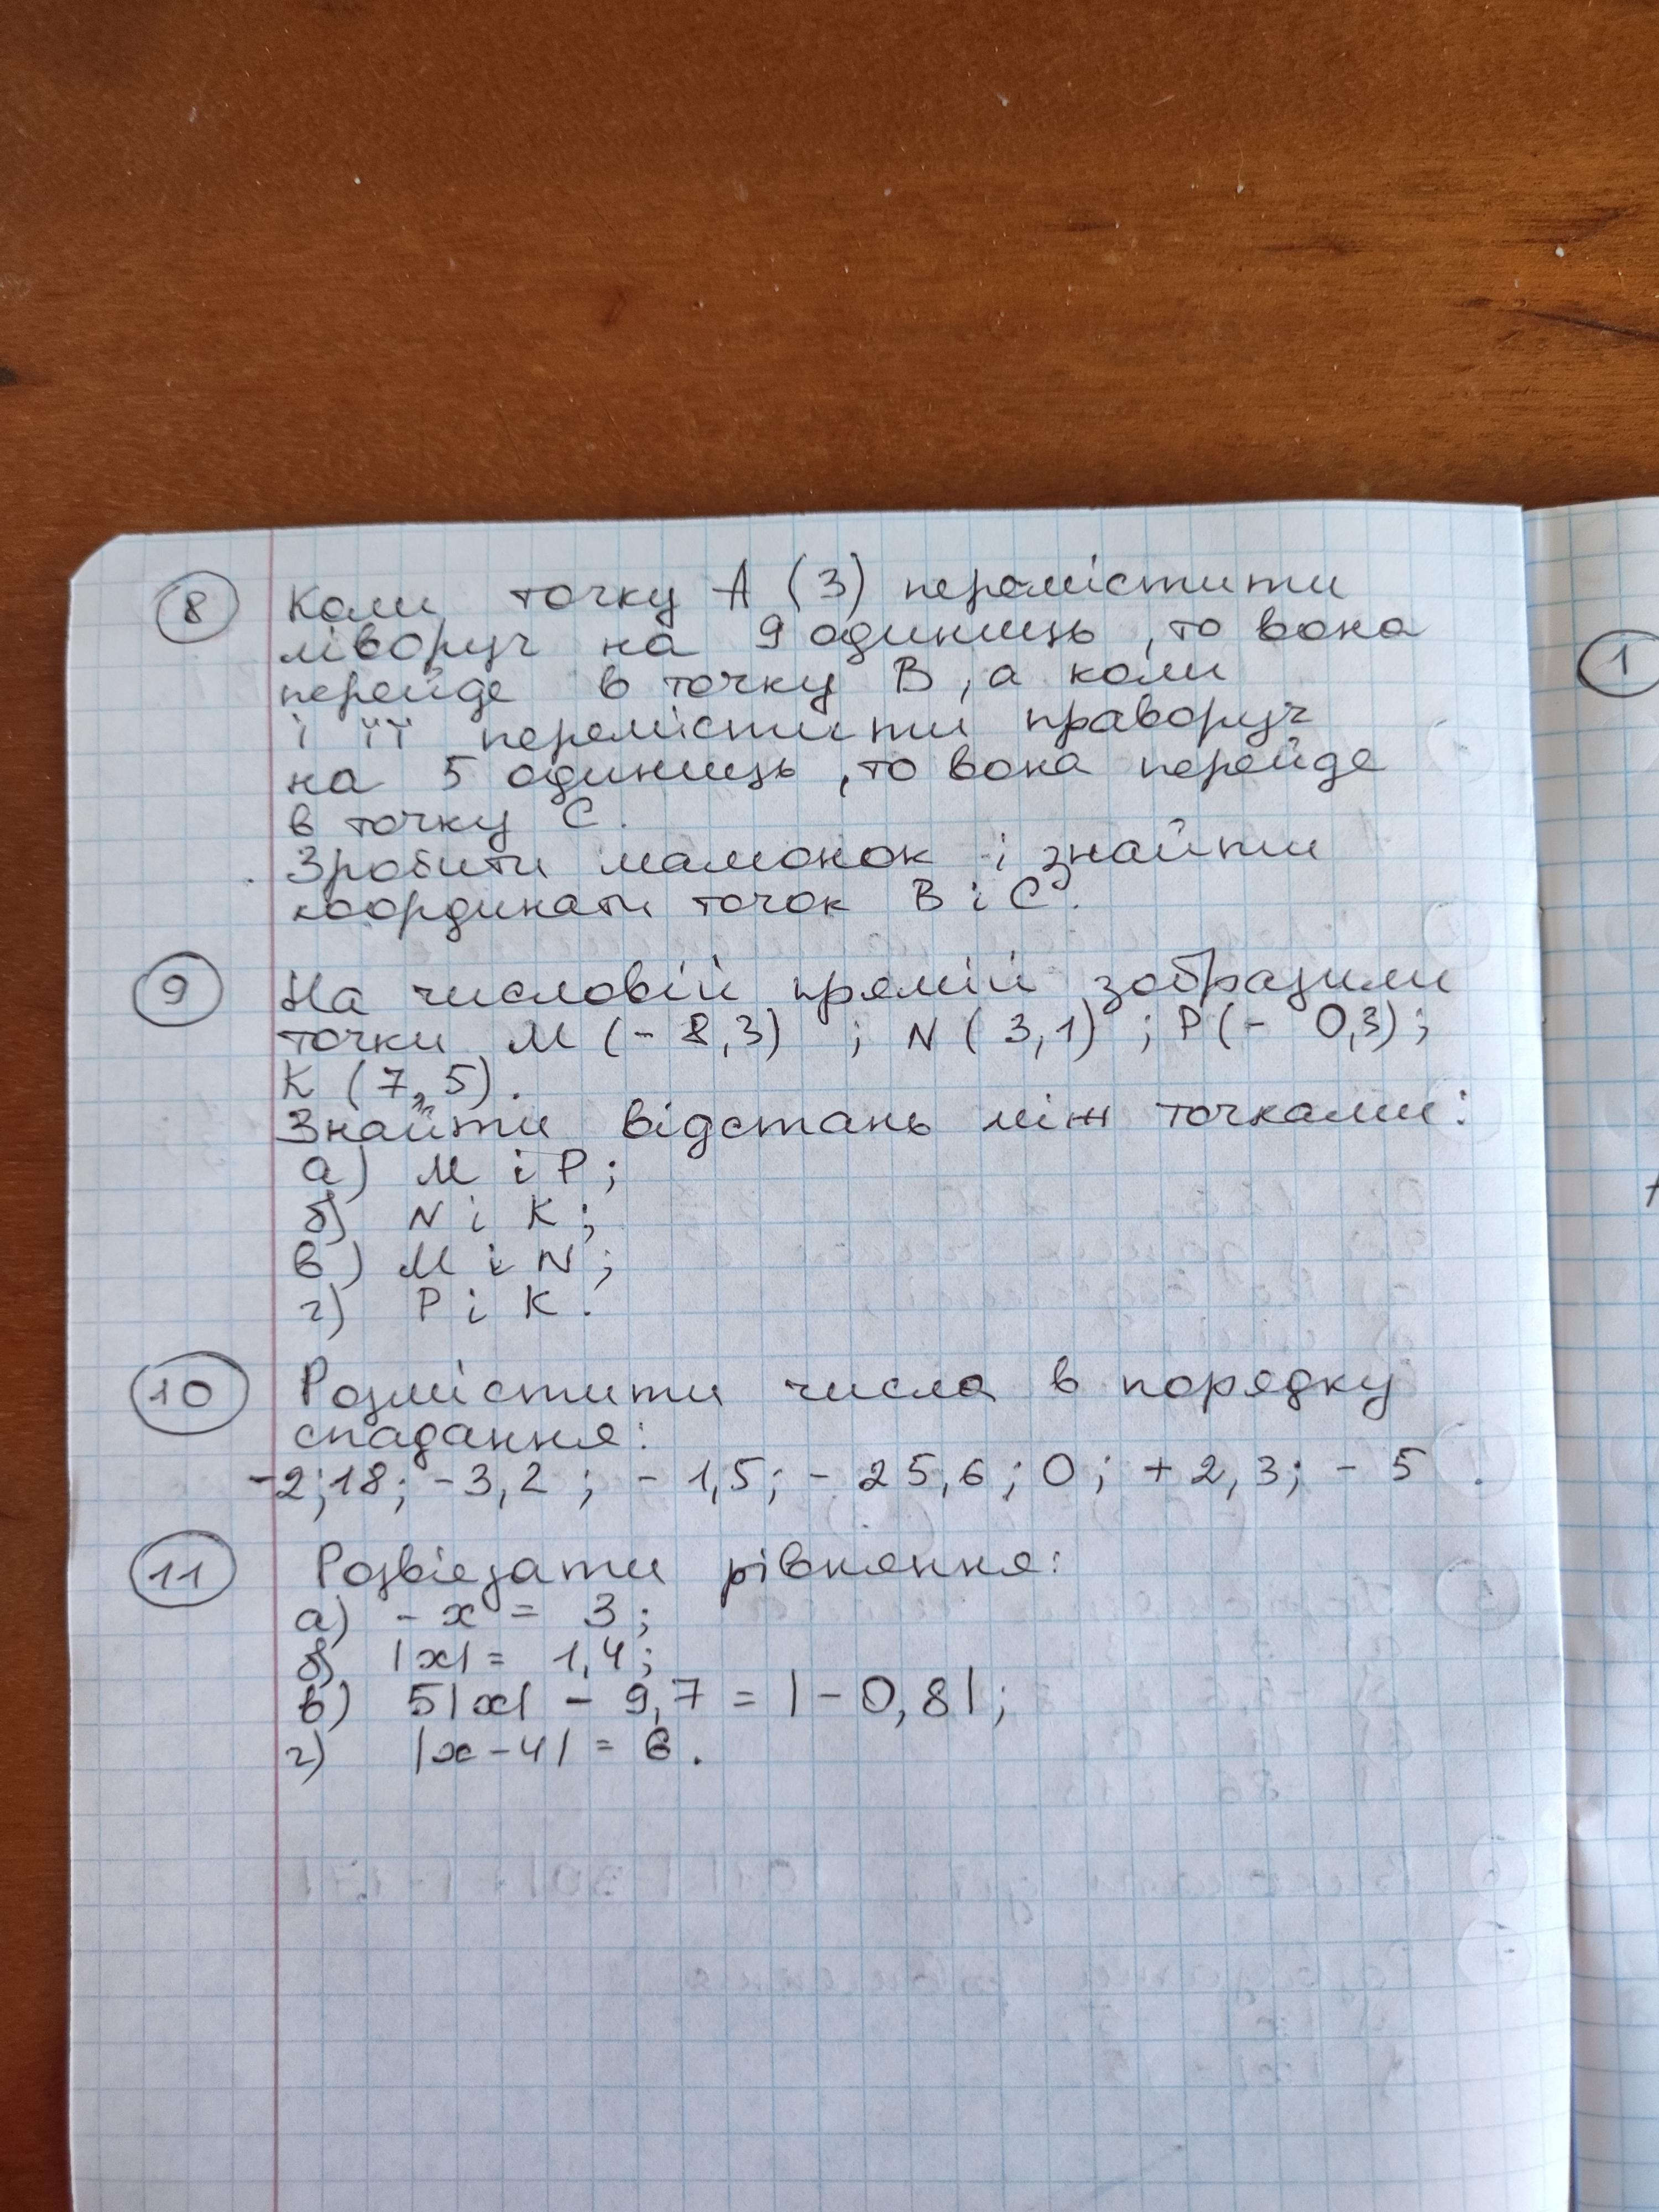 8 Коли точку А (3) перемістити
ліворуч на 9 одиниць, то вона
перейде в точку В, а коли
і її перемістити праворуч
на 5 одиниць, то вона перейде
в точку С.
Зробити малюнок і знайти
координати точок В і С.
9 На числовій прямій зобразили
точки М (- 8,3) ; N ( 3,1) ; Р (- 0,3);
К (7,5).
Знайти відстань між точками:
а) М і Р;
б) N і К;
в) М і N;
г) Р і К.
10 Розмістити числа в порядку
спадання:
-2; 18; -3,2 ; - 1,5; - 25,6; 0; + 2,3; - 5 .
11 Розв'язати рівняння:
а) - x = 3;
б) |x| = 1,4;
в) 5|x| - 9,7 = |- 0,8|;
г) |x - 4| = 6.
1